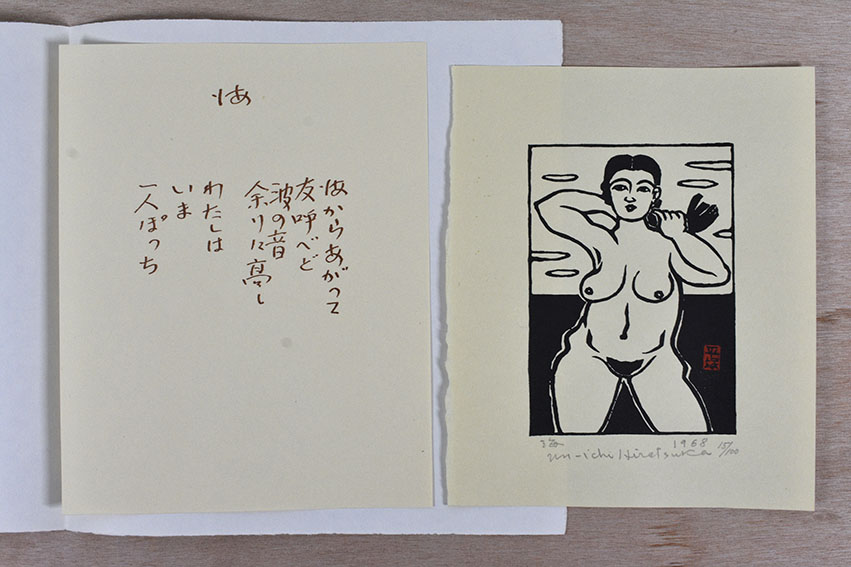 海
海からあがって
友呼べど
波の音
余りに高し
わたしは
いま
一人ぽっち
海
1968 15/100
Un-ichi Hiratsuka